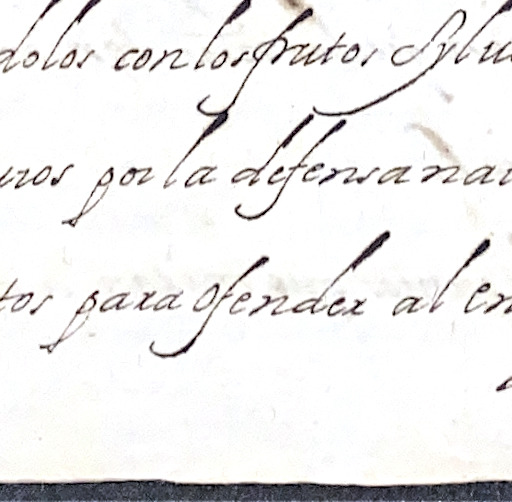 dolos con los frutos Sylu
uros por la defensa nau
tos para ofender al en